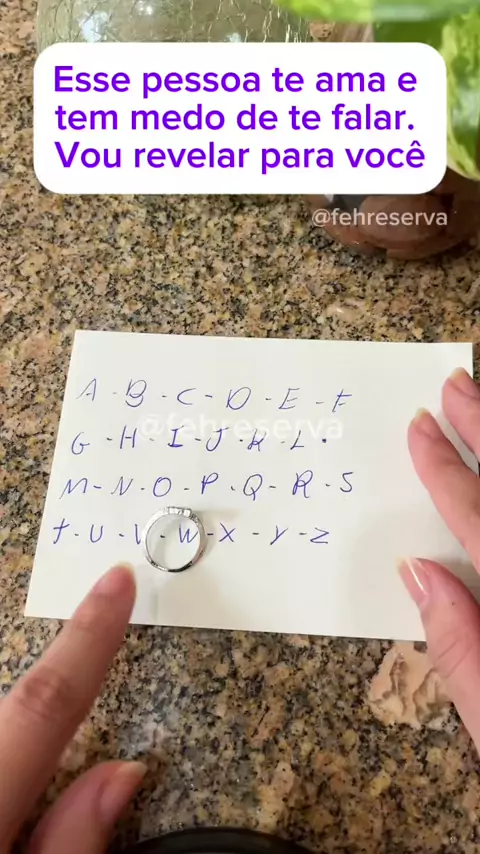 Esse pessoa te ama e
tem medo de te falar.
Vou revelar para você
@fehreserva
A - B - C - D - E - F
@fehreserva
G - H - I - J - K - L.
M - N - O - P - Q - R - S
T - U - V - W - X - Y - Z